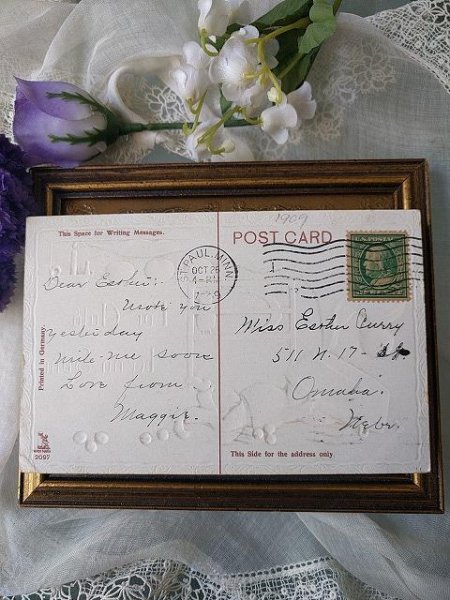 This Space for Writing Messages.
Dear Esther:
Wrote you
yesterday
write me soon
Love from
Maggie.
Printed in Germany.
2097
1909
POST CARD
ST. PAUL, MINN.
OCT 26
U.S. POSTAGE
Miss Esther Curry
511 N. 17 - St
Omaha
Nebr.
This Side for the address only